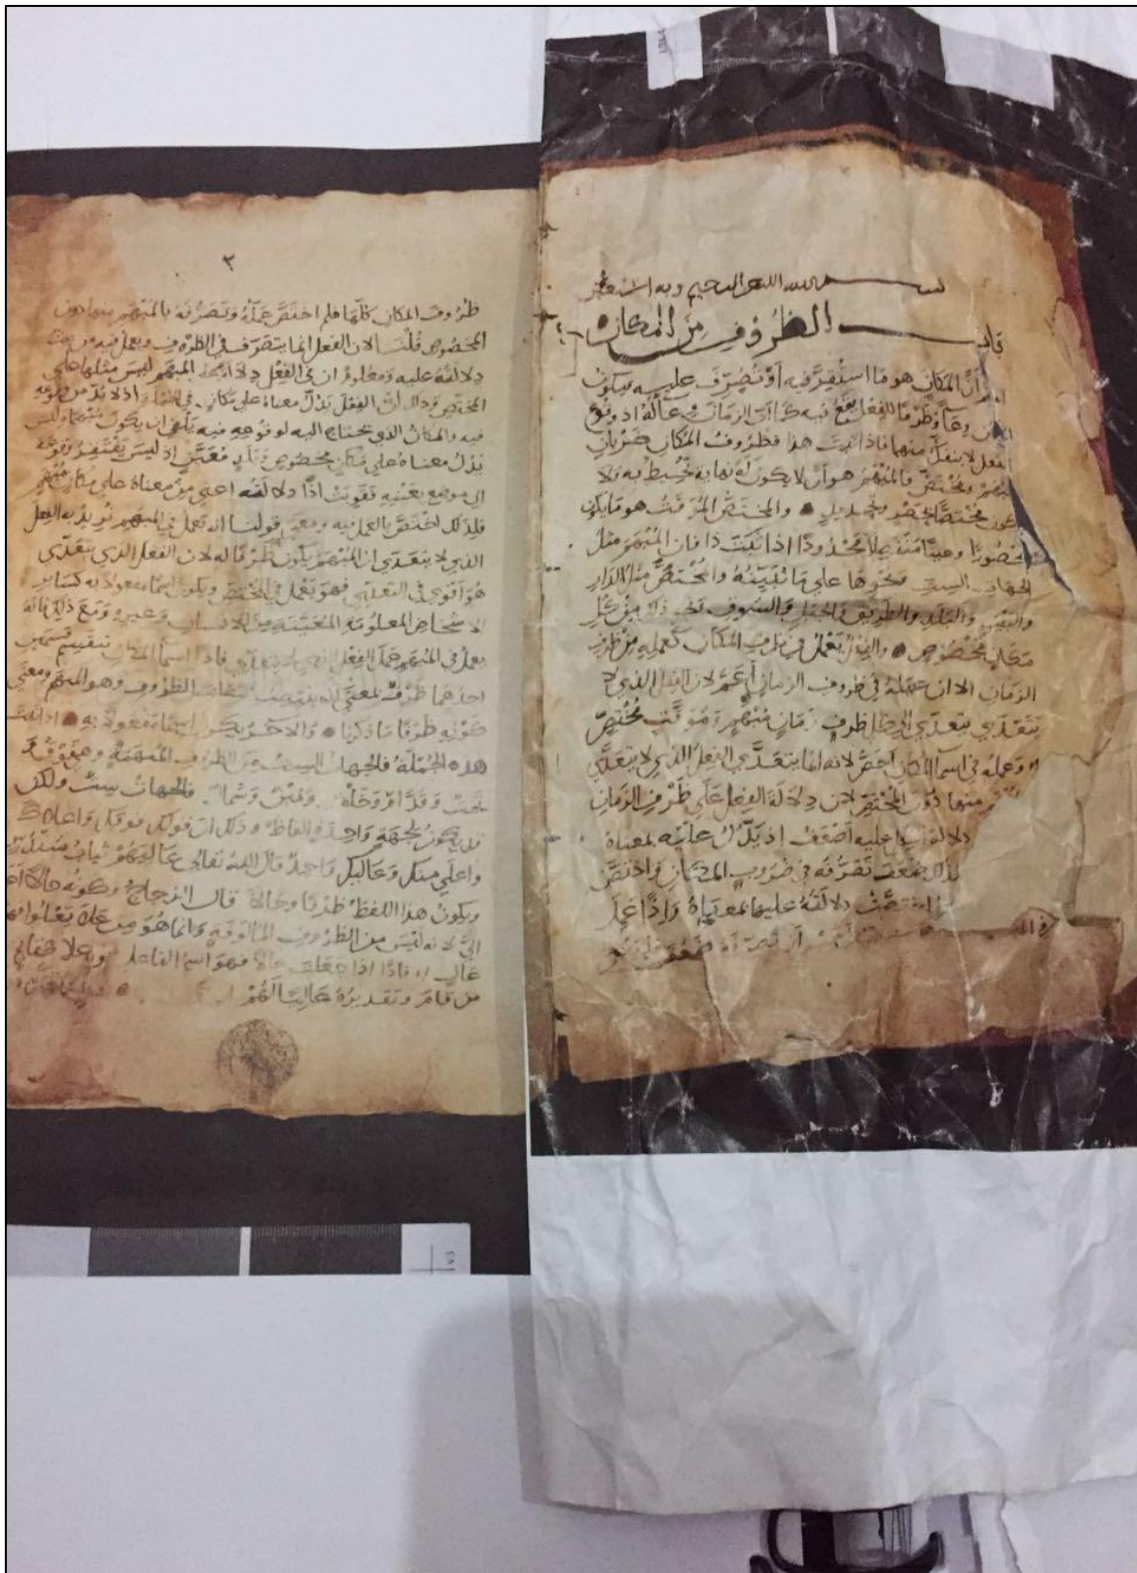 بسم الله الرحمن الرحيم وبه استعين
باب الظروف من المكان
أن المكان هو ما استقر فيه أو تصرف عليه فيكون
وعاً وظرفا للفعل يقع فيه كما أن الزمان في حاله اذ وقوع
الفعل لا ينفك منهما فاذا ثبت هذا فظروف المكان ضربان
مبهم ومختص فالمبهم هو أن لا يكون له نهاية تحيط به ولا
يكون مختصا بحصر وتحديد والمختص المؤقت هو ما يكون
محصورا محدودا اذا ثبت ذا فان المبهم مثل
الجهات الست ونحوها على ما نبينه والمختص مثل الدار
والبيت والبلد والطريق والجبل والسوق ذلك من كل
مكان مخصوص والفعل يعمل في ظرف المكان كعمله من ظرف
الزمان الا ان عمله في ظروف الزمان أعم لان الفعل الذي لا
يتعدى يتعدى الى كل ظرف زمان مبهم وموقت مختص
وعمله في اسما المكان أخص لانه انما يتعدى الفعل الذي لا يتعدى
منها دون المختص لان دلالة الفعل على ظرف الزمان
عليه أضعف اذ يدل عليه بمعناه
ضعف تصرفه في ضروب المكان واختص
دلالته عليها بمعناه واذا
٢
ظروف المكان كلها فلم اختص عمله وتصرفه بالمبهم منها دون
المخصوص قلنا لان الفعل انما يتصرف في الظرف ويعمل فيه من حيث
دلالته عليه ومعلوم ان في الفعل دلالة على المبهم ليس مثلها على
المختص وذلك أن الفعل يدل معناه على مكان في الجملة اذ لا بد من وقوعه
فيه والمكان الذي يحتاج اليه لوقوعه فيه يكفي ان يكون مبهما وليس
يدل معناه على مكان مخصوص وبلد معين اذ ليس يفتقر وقوعه
الى موضع بعينه فقويت اذا دلالته اعني من معناه على مكان مبهم
فلذلك اختص بالعمل فيه ومعنى قولنا انه يعمل في المبهم نريد به الفعل
الذي لا يتعدى ان المبهم يكون ظرفا له لان الفعل الذي يتعدى
هو أقوى في التعدي فهو يعمل في المختص ويكون اسما مفعولا به كسائر
الاشخاص المعلومة المعينة من الانسان وغيره ومع ذلك فانه
يعمل في المبهم عمل الفعل الذي لا يتعدى فاذا اسما المكان تنقسم قسمين
احدهما ظرف لمعنى انه ينتصب انتصاب الظروف وهو المبهم ومعنى
كونه ظرفا ما ذكرنا والاخر يكون اسما مفعولا به اذا ثبتت
هذه الجملة فالجهات الست من الظروف المبهمة وهي فوق و
تحت وقدام وخلف ويمين وشمال فالجهات ست ولكن
قد يكون لجهة واحدة الفاظ وذلك ان قولك فوقك واعلاك
واعلى منك وعاليك واحد قال الله تعالى عاليهم ثياب سندس
ويكون هذا اللفظ ظرفا وحالا قال الزجاج وكونه حالا
الي لانه ليس من الظروف المالوفة وانما هو من علا يعلو
عال فاذا اذا جعلت حالا فهو اسم الفاعل من علا
من قام وتقديره عاليا لهم